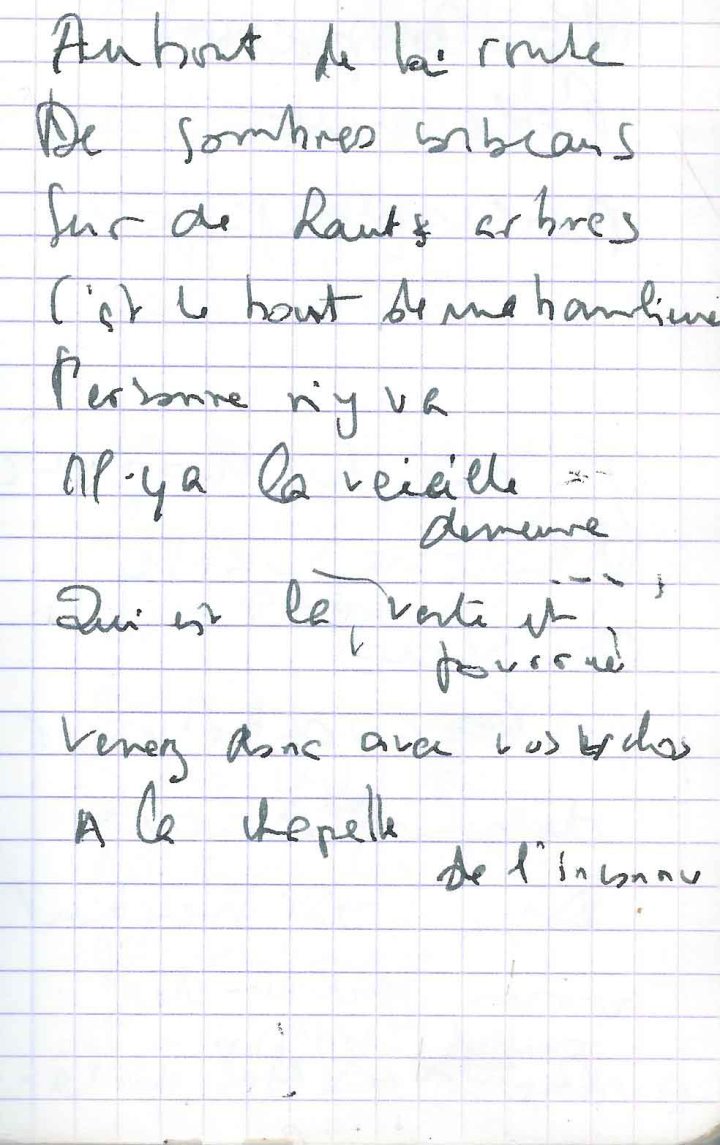 Au bout de la route
De sombres corbeaux
Sur de hauts arbres
C'est le bout de ma banlieue
Personne n'y va
Il y a la vieille
demeure
Qui est là, verte et
pourrie
Venez donc avec vos
A la chapelle
De l'inconnu